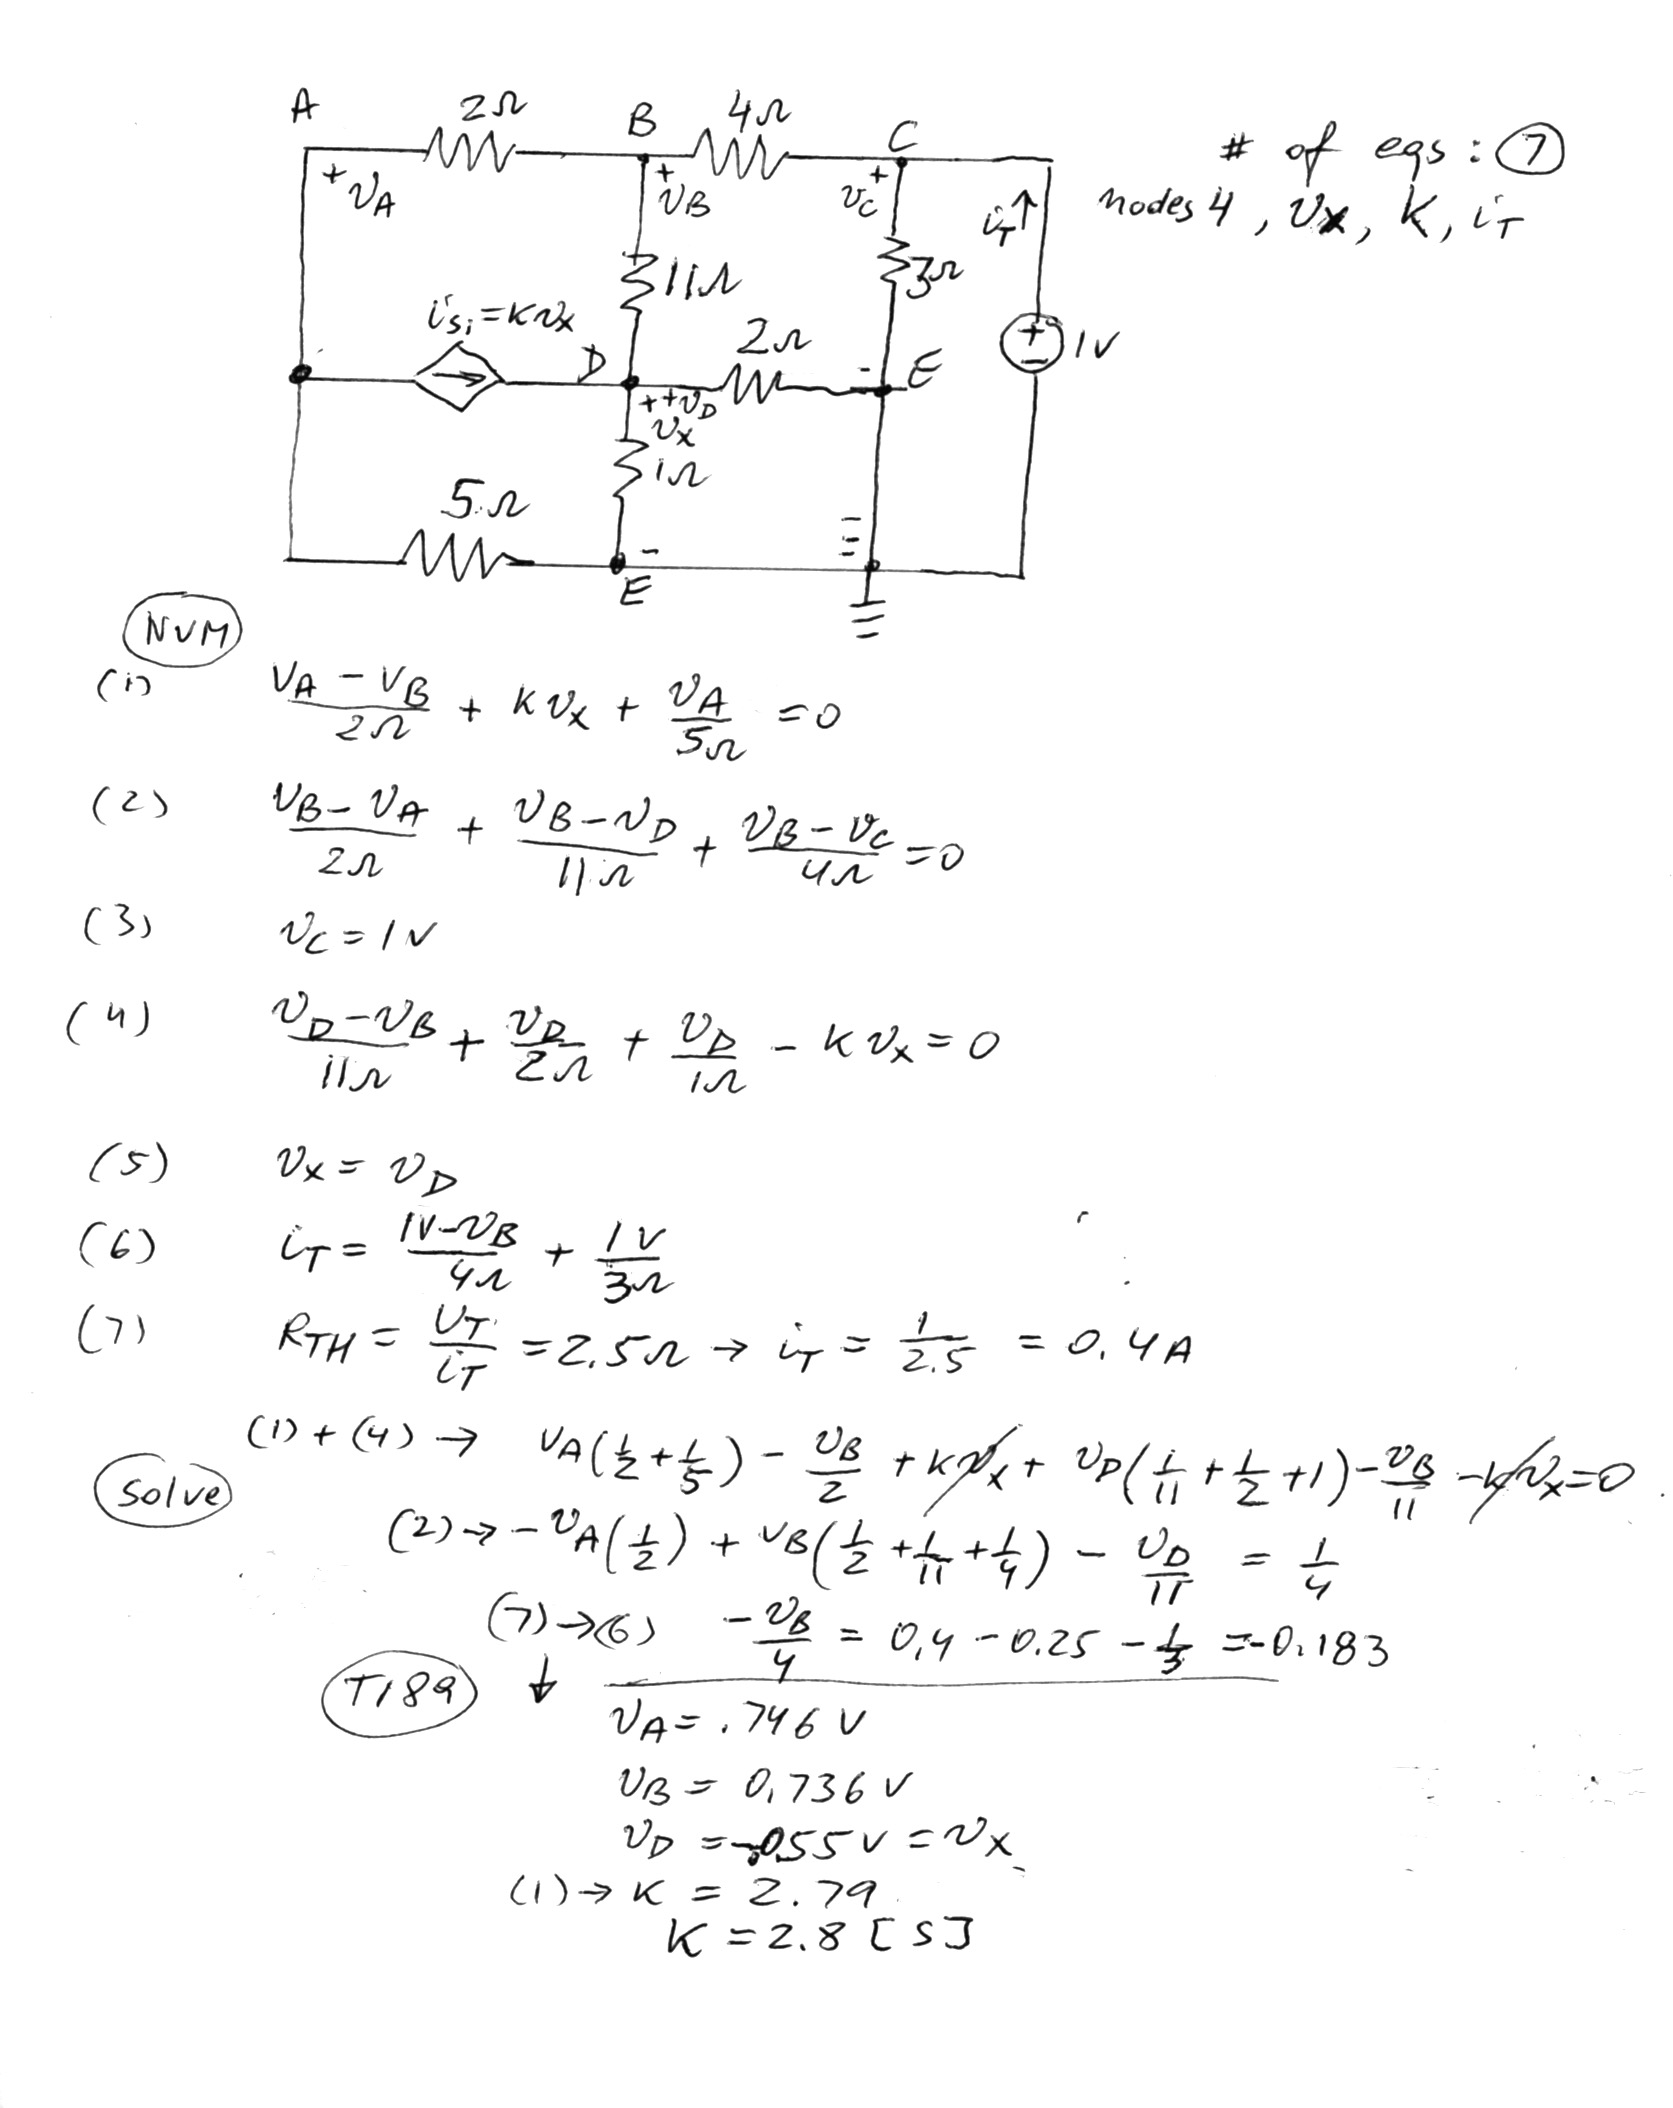 A 2Ω B 4Ω C
# of eqs : 7
nodes 4, vx, K, iT
+ vA + vB + vC iT
11Ω 3Ω
iS1 = Kvx D 2Ω - E + - 1V
+ + vD
vx
1Ω
5Ω
- E
NVM
(1) (vA - vB)/2Ω + K vx + vA/5Ω = 0
(2) (vB - vA)/2Ω + (vB - vD)/11Ω + (vB - vC)/4Ω = 0
(3) vC = 1V
(4) (vD - vB)/11Ω + vD/2Ω + vD/1Ω - K vx = 0
(5) vx = vD
(6) iT = (1V - vB)/4Ω + 1V/3Ω
(7) RTH = vT/iT = 2.5Ω → iT = 1/2.5 = 0.4A
(1) + (4) → vA(1/2 + 1/5) - vB/2 + Kvx + vD(1/11 + 1/2 + 1) - vB/11 - Kvx = 0
Solve
(2) → - vA(1/2) + vB(1/2 + 1/11 + 1/4) - vD/11 = 1/4
(7) → (6) - vB/4 = 0.4 - 0.25 - 1/3 = -0.183
TI89 ↓
vA = .746 V
vB = 0.736 V
vD = -.055 V = vx
(1) → K = 2.79
K = 2.8 [S]